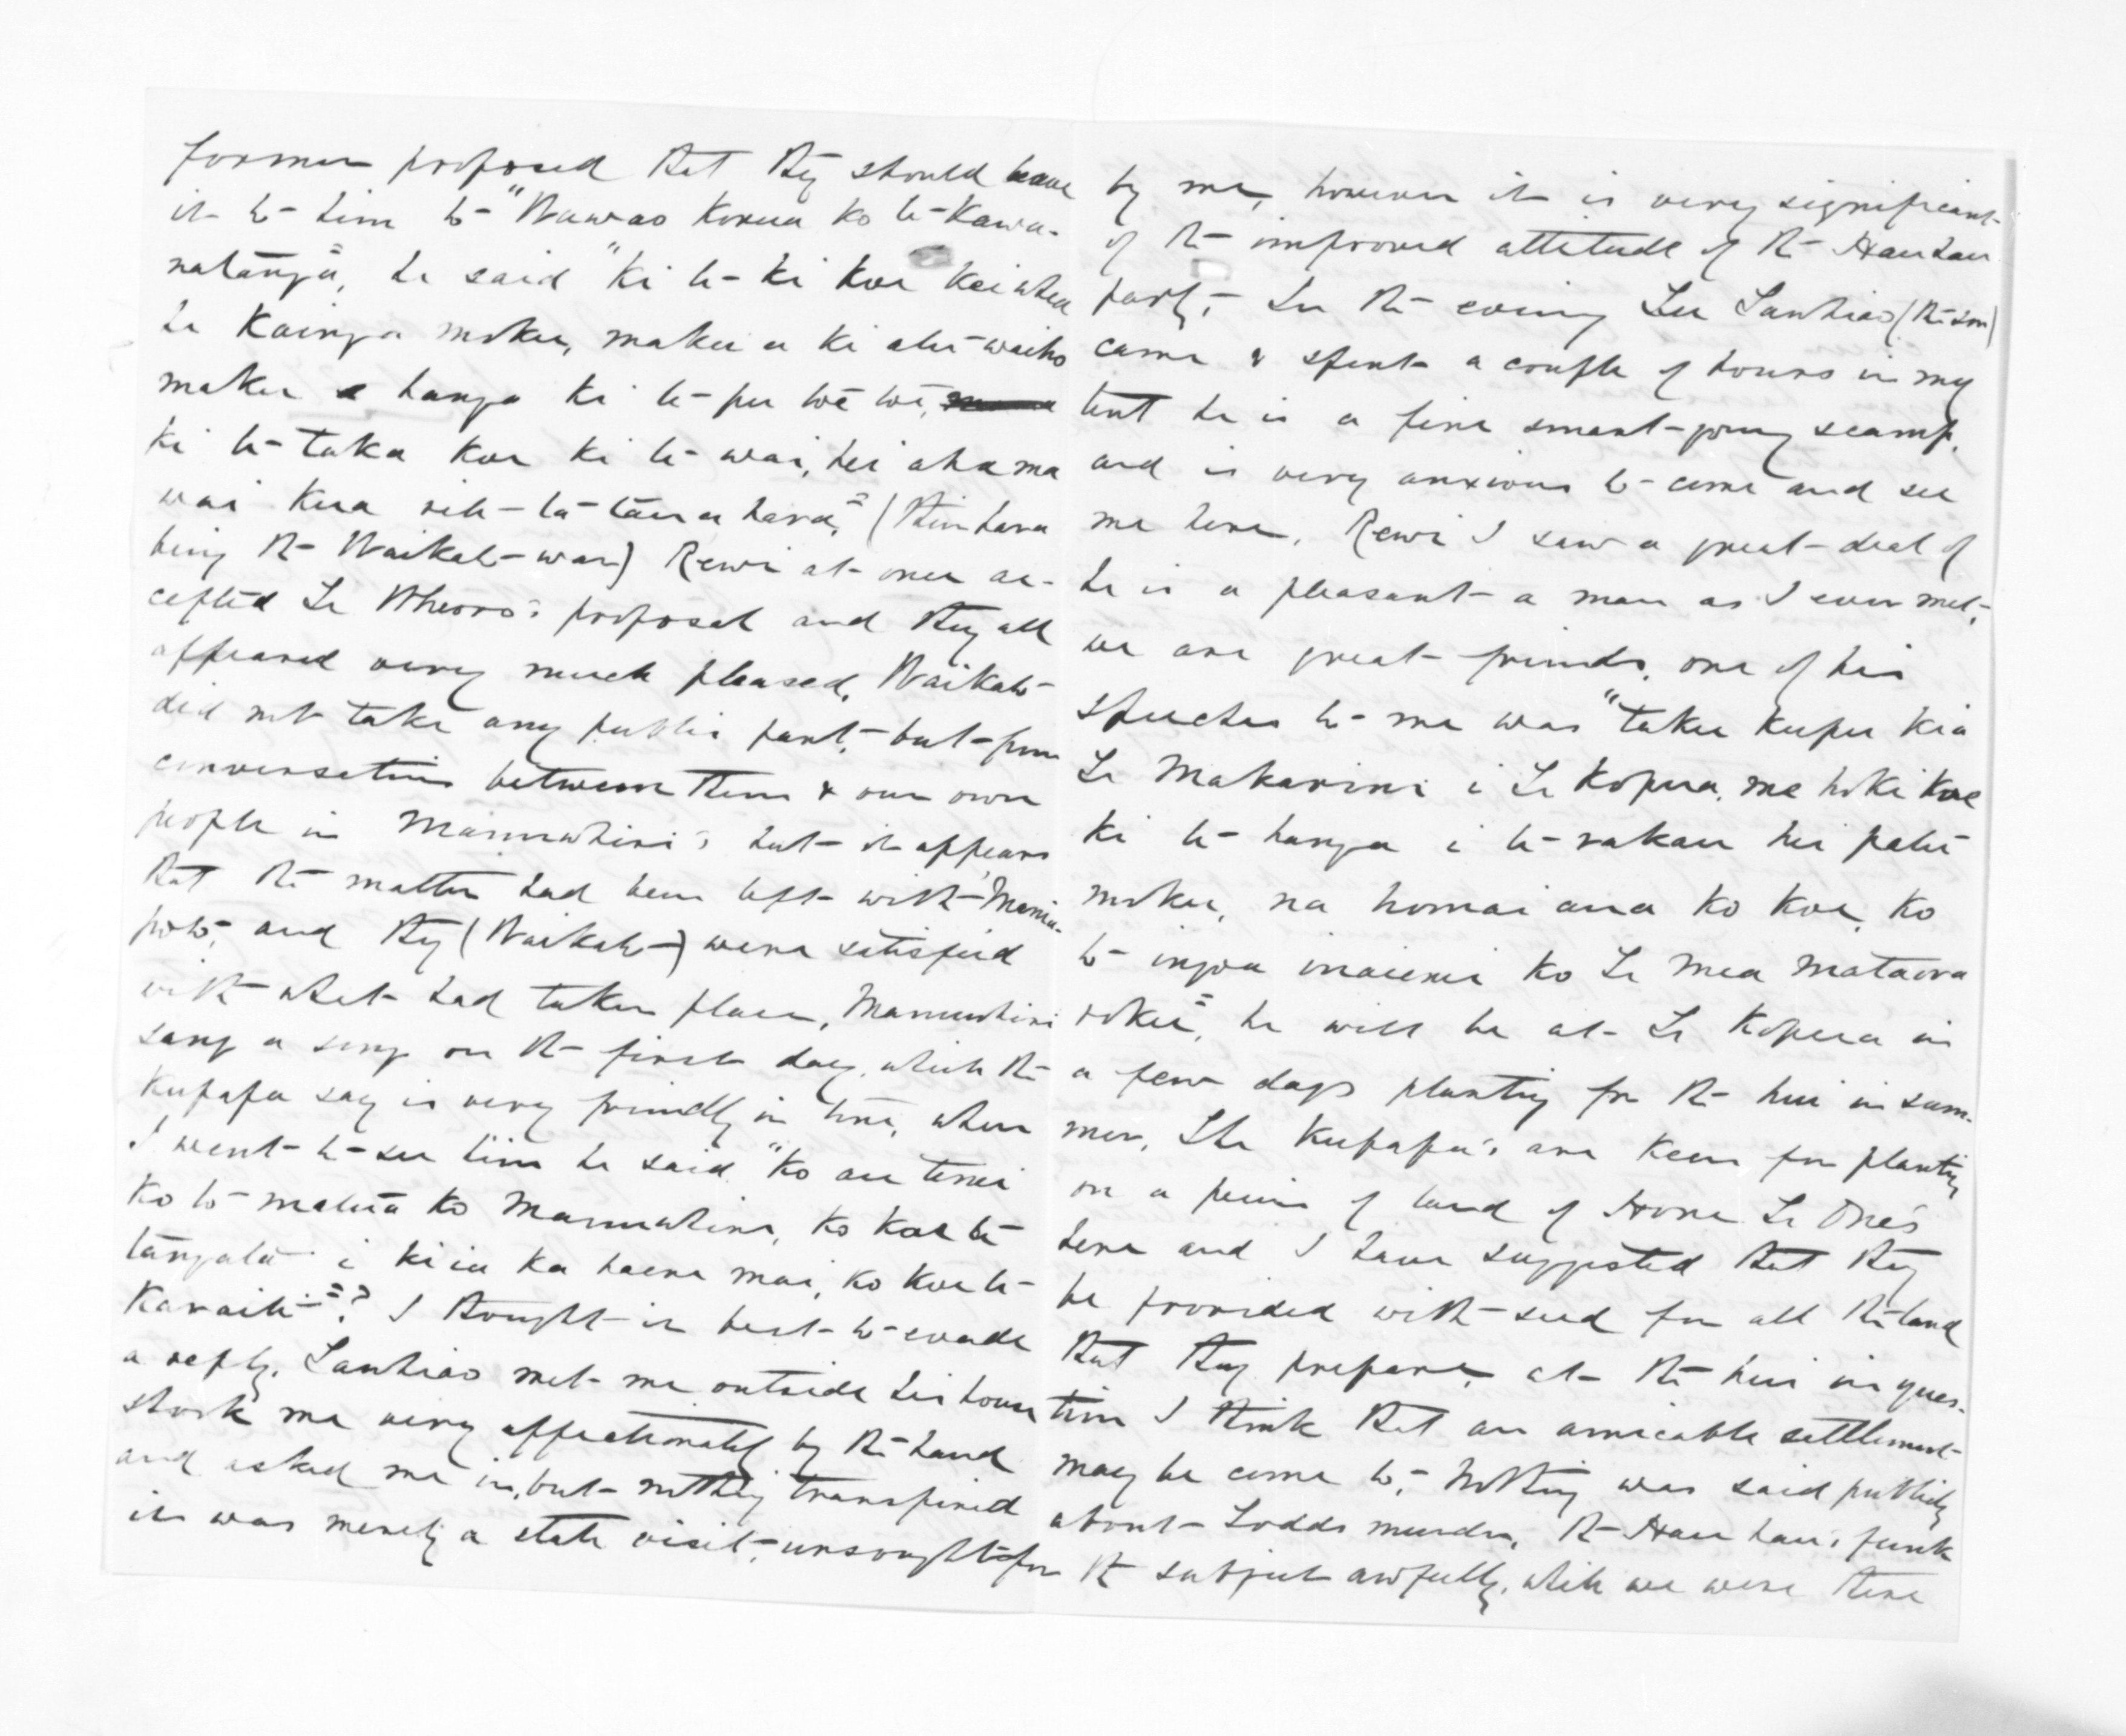 former proposed that they should leave
it to him to "Wawao korua ko te Kawa-
natanga", he said "ki te ki koe kei whea
he Kainga moku, maku e ki atu waiho
maku e hanga ki te pu wē wē,
ki te taka koe ki te wai, hei aha ma
wai kua rite ta tāua hara," (Tim hara
being the Waikato war) Rewi at once ac-
cepted Te Wheoro's proposal and they all
appeared very much pleased, Waikato
did not take any public part, but from
conversations between them & our own
people in Manuwhiri's hut it appears
that the matter had been left with Mania-
poto, and they (Waikato) were satisfied
with what had taken place, Manuwhiri
sang a song on the first day, which the
Kupapa say is very friendly in tone, when
I went to see him he said "Ko au tenei
ko to matua ko Manuwhiri, ko koe te
tangata i kiia ka haere mai, ko koe te
Karaiti"? I thought it best to evade
a reply, Tawhiao met me outside his house
shook me very affectionately by the hand
and asked me in, but nothing transpired
it was merely a state visit, unsought for
by me, however it is very significant
of the improved attitude of the Hau hau
party, In the evening Tu Tawhiao (the son)
came & spent a couple of hours in my
tent he is a fine smart young scamp,
and is very anxious to come and see
me here, Rewi I saw a great deal of
he is a pleasant a man as I ever met,
we are great friends, one of his
speeches to me was "taku kupu kia
Te Makarini i Te Kopua, me hoki koe
ki te hanga i te rakau hei patu
moku, na homai ana ko koe, ko
to ingoa inaienei ko Te Mea Mataora
roku", he will be at Te Kopua in
a few days planting for the hui in sum-
mer, The Kupapa's are keen for planting
on a piece of land of Hone Te One's
here and I have suggested that they
be provided with seed for all the land
that they prepare, at the hui in ques-
tion I think that an amicable settlement
may be come to, Nothing was said publicly
about Todds murder, the Hau hau's funk
the subject awfully, while we were there